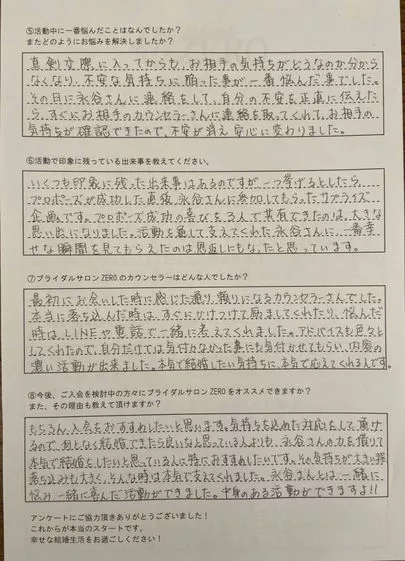 ⑤活動中に一番悩んだことはなんでしたか？
またどのようにお悩みを解決しましたか？
真剣交際に入ってからも、お相手の気持ちがどうなのか分から
なくなり、不安な気持ちに陥った事が一番悩んだ事でした。
その日に永谷さんに連絡をして、自分の不安を正直に伝えた
ら、すぐにお相手のカウンセラーさんに連絡を取ってくれて、お相手の
気持ちが確認できたので、不安が消え安心に変わりました。
⑥活動で印象に残っている出来事を教えてください。
いくつも印象に残った出来事はあるのですが一つ挙げるとしたら、
プロポーズが成功した直後、永谷さんに参加してもらったサプライズ
企画です。プロポーズ成功の喜びを3人で共有できたのは、大きな
思い出になりました。活動を通して支えてくれた永谷さんに、一番幸
せな瞬間を見てもらえたのは恩返しにもなったと思っています。
⑦ブライダルサロンZEROのカウンセラーはどんな人でしたか？
最初にお会いした時に感じた通り、頼りになるカウンセラーさんでした。
本当に落ち込んだ時は、すぐにかけつけて励ましてくれたり、悩んだ
時は、LINEや電話で一緒に考えてくれました。アドバイスも色々と
してくれたので、自分だけでは気付かなかった事にも気付かせてもらい、内容の
濃い活動が出来ました。本気で結婚したい気持ちに、本気で応えてくれる人です。
⑧今後、ご入会を検討中の方々にブライダルサロンZEROをオススメできますか？
また、その理由も教えて頂けますか？
もちろん、入会をおすすめしたいと思います。気持ちを込めた対応をして頂け
るので、何となく結婚できたら良いなと思っている人よりも、永谷さんの力を借りて
本気で結婚したいと思っている人に特におすすめしたいです。その気持ちが大きい程
落ち込みも大きく、そんな時は本気で支えてくれました。永谷さんとは一緒に
悩み、一緒に喜んだ活動ができました。中身のある活動ができますよ!!
アンケートにご協力頂きありがとうございました！
これからが本当のスタートです。
幸せな結婚生活をお過ごしください！